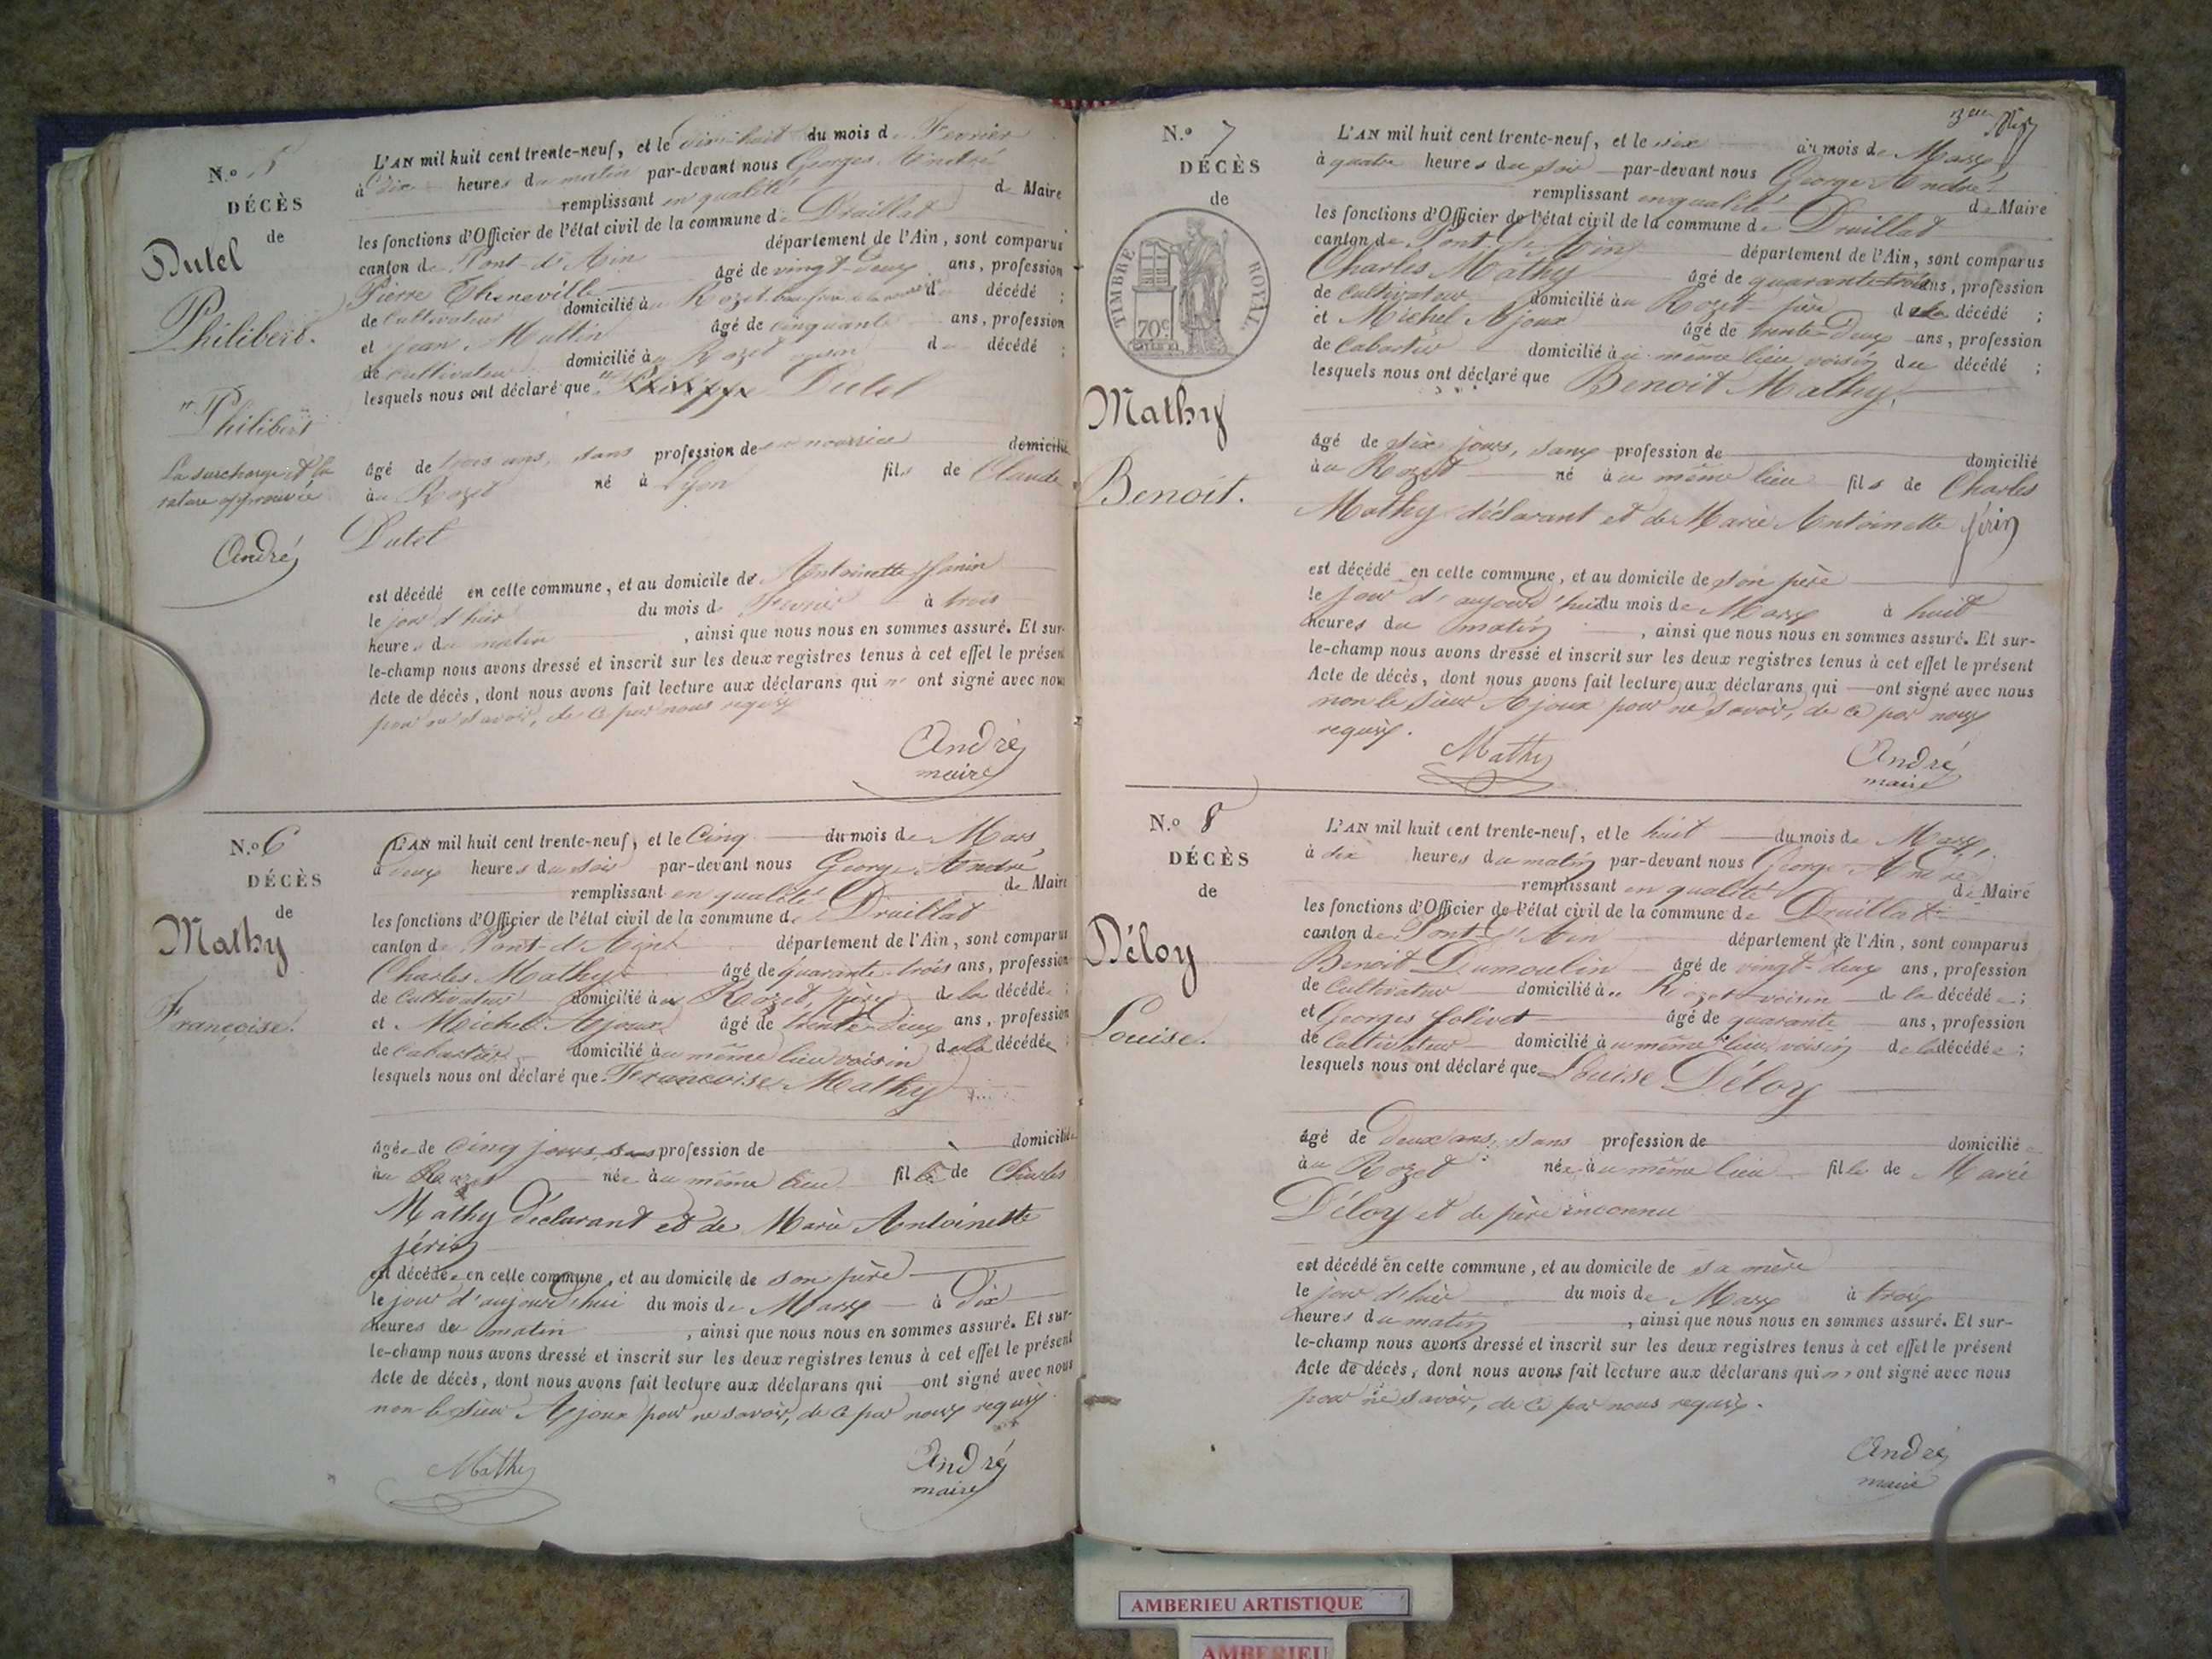 N.º 5
DÉCÈS
de
Dutel
Philibert.
"Philibert"
La surcharge et la
rature approuvée
André
L'AN mil huit cent trente-neuf, et le dix-huit du mois de Fevrier
à dix heures du matin par-devant nous Georges André
remplissant en qualité de Maire
les fonctions d'Officier de l'état civil de la commune de Druillat
canton de Pont-d'Ain département de l'Ain, sont comparus
Pierre Theneville âgé de vingt-deux ans, profession
de Cultivateur domicilié au Rozet d décédé ;
et Jean Mallin âgé de cinquante ans, profession
de cultivateur domicilié au Rozet voisin du décédé ;
lesquels nous ont déclaré que " Dutel
âgé de trois ans, sans profession de en nourrice domicilié
au Rozet né à Lyon fils de Claude
Dutel
est décédé en cette commune, et au domicile de Antoinette Janin
le jour d'hier du mois de Fevrier à trois
heures du matin , ainsi que nous nous en sommes assuré. Et sur-
le-champ nous avons dressé et inscrit sur les deux registres tenus à cet effet le présent
Acte de décès, dont nous avons fait lecture aux déclarans qui n' ont signé avec nous
pour ne savoir, de ce par nous requis
André
maire
N.º 6
DÉCÈS
de
Mathy
Françoise.
L'AN mil huit cent trente-neuf, et le Cinq du mois de Mars,
à deux heures du soir par-devant nous George André
remplissant en qualité de Maire
les fonctions d'Officier de l'état civil de la commune de Druillat
canton de Pont-d'Ain département de l'Ain, sont comparus
Charles Mathy âgé de quarante-trois ans, profession
de Cultivateur domicilié au Rozet, père de la décédée ;
et Michel Ajoux âgé de trente-deux ans, profession
de Cabartier domicilié au même lieu voisin de la décédée ;
lesquels nous ont déclaré que Françoise Mathy
âgée de Cinq jours, sans profession de domicilié
au Rozet née au même lieu fille de Charles
Mathy déclarant et de Marie Antoinette
férin
est décédée en cette commune, et au domicile de son père
le jour d'aujourd'hui du mois de Mars à Dix
heures du matin , ainsi que nous nous en sommes assuré. Et sur-
le-champ nous avons dressé et inscrit sur les deux registres tenus à cet effet le présent
Acte de décès, dont nous avons fait lecture aux déclarans qui ont signé avec nous
non le sieur Ajoux pour ne savoir, de ce par nous requis.
Mathy
André
maire
N.º 7
DÉCÈS
de
TIMBRE ROYAL.
70c
Mathy
Benoit.
L'AN mil huit cent trente-neuf, et le six du mois de Mars
à quatre heures du soir par-devant nous George André
remplissant en qualité de Maire
les fonctions d'Officier de l'état civil de la commune de Druillat
canton de Pont-d'Ain département de l'Ain, sont comparus
Charles Mathy âgé de quarante-trois ans, profession
de Cultivateur domicilié au Rozet père d décédé ;
et Michel Ajoux âgé de trente-deux ans, profession
de Cabartier domicilié au même lieu voisin du décédé ;
lesquels nous ont déclaré que Benoit Mathy,
âgé de six jours, sans profession de domicilié
au Rozet né au même lieu fils de Charles
Mathy déclarant et de Marie Antoinette férin
est décédé en cette commune, et au domicile de son père
le jour d'aujourd'hui du mois de Mars à huit
heures du matin , ainsi que nous nous en sommes assuré. Et sur-
le-champ nous avons dressé et inscrit sur les deux registres tenus à cet effet le présent
Acte de décès, dont nous avons fait lecture aux déclarans qui ont signé avec nous
non le sieur Ajoux pour ne savoir, de ce par nous
requis.
Mathy
André
maire
N.º 8
DÉCÈS
de
Déloy
Louise.
L'AN mil huit cent trente-neuf, et le huit du mois de Mars,
à dix heures du matin par-devant nous George André
remplissant en qualité de Maire
les fonctions d'Officier de l'état civil de la commune de Druillat
canton de Pont-d'Ain département de l'Ain, sont comparus
Benoit Dumoulin âgé de vingt-deux ans, profession
de Cultivateur domicilié au Rozet voisin de la décédée ;
et Georges Jolivet âgé de quarante ans, profession
de Cultivateur domicilié au même lieu, voisin de la décédée ;
lesquels nous ont déclaré que Louise Déloy
âgé de Deux ans, sans profession de domiciliée
au Rozet née au même lieu fille de Marie
Déloy et de père inconnu
est décédé en cette commune, et au domicile de sa mère
le jour d'hier du mois de Mars à trois
heures du matin , ainsi que nous nous en sommes assuré. Et sur-
le-champ nous avons dressé et inscrit sur les deux registres tenus à cet effet le présent
Acte de décès, dont nous avons fait lecture aux déclarans qui n' ont signé avec nous
pour ne savoir, de ce par nous requis.
André
maire
AMBERIEU ARTISTIQUE
AMBERIEU